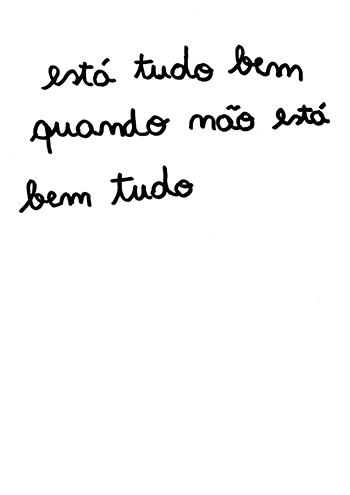 está tudo bem
quando não está
bem tudo